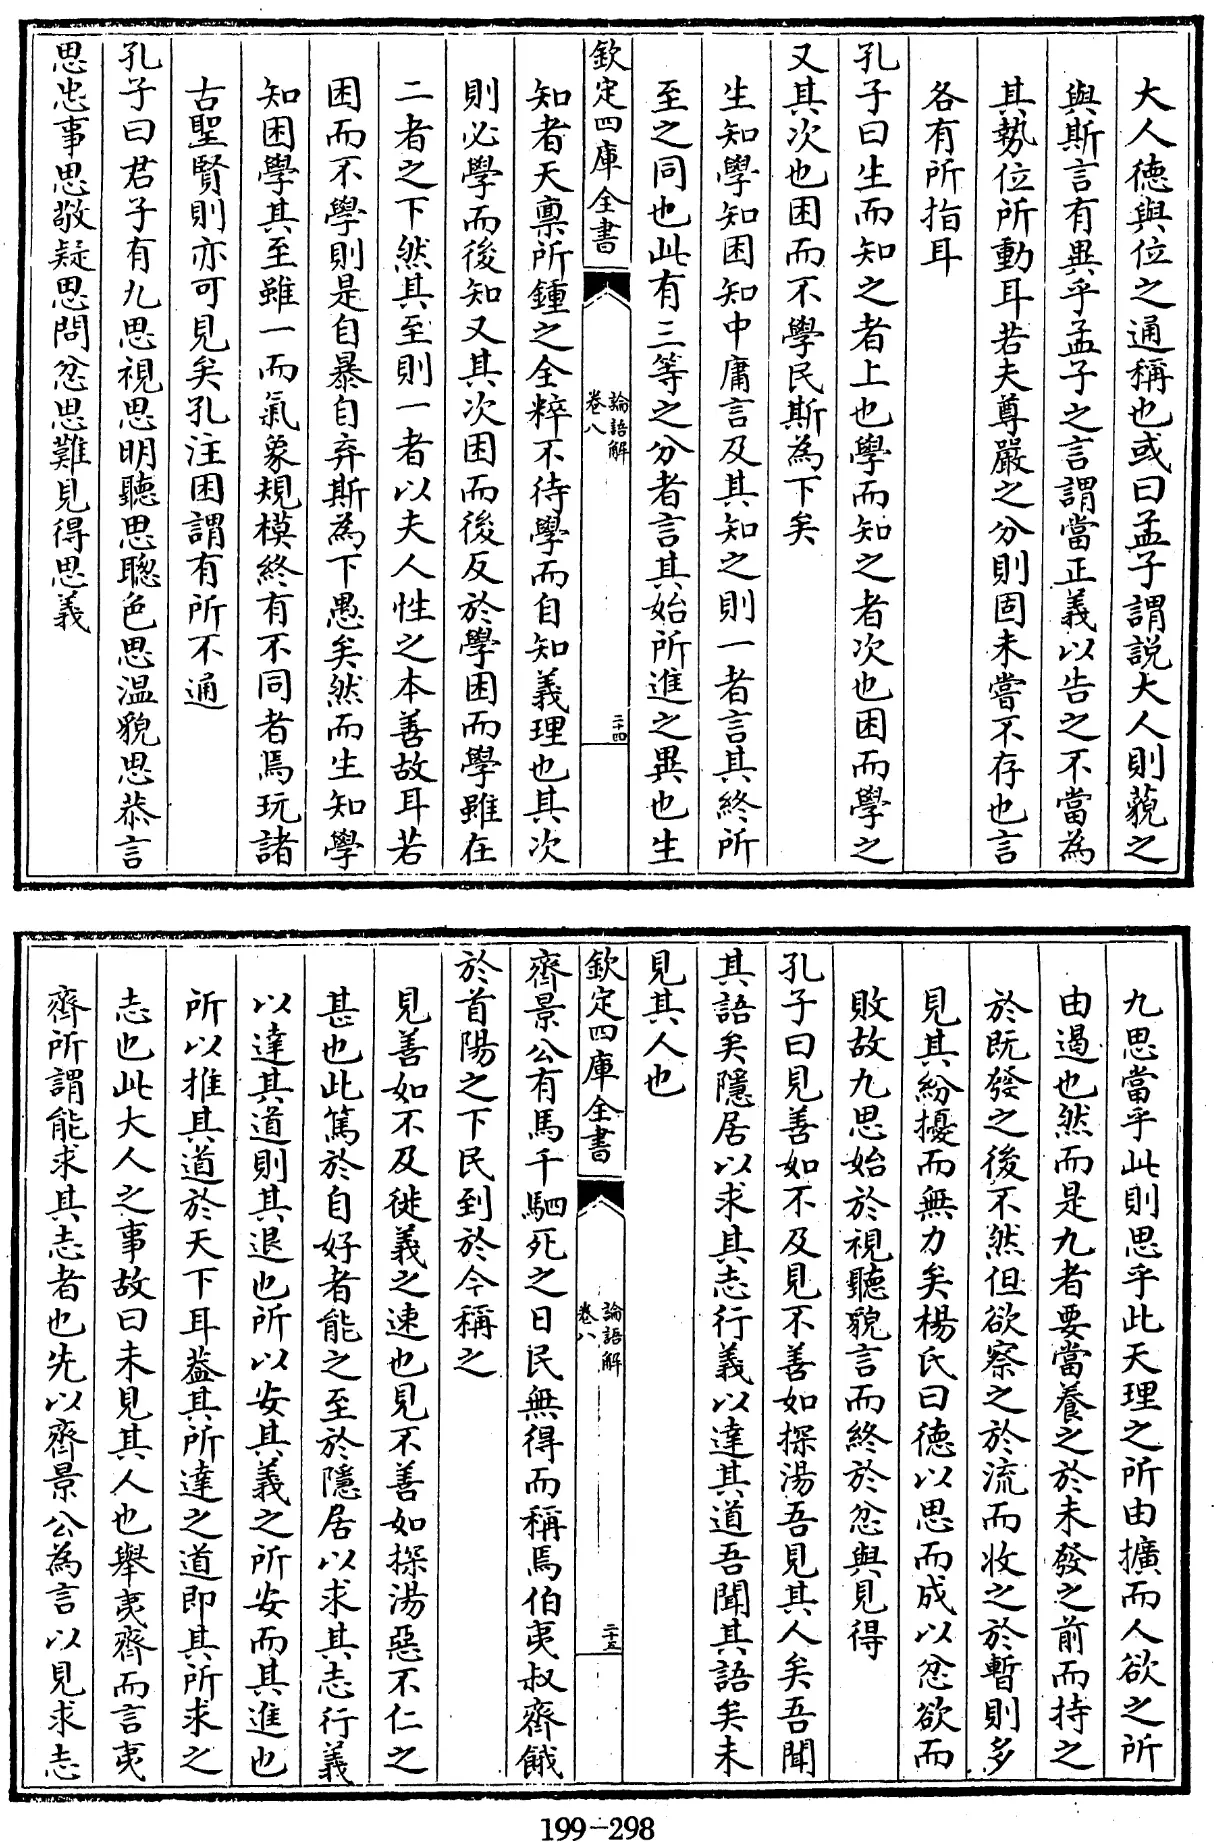 大人徳與位之通稱也或曰孟子謂説大人則藐之
與斯言有異乎孟子之言謂當正義以告之不當為
其勢位所動耳若夫尊嚴之分則固未嘗不存也言
各有所指耳
孔子曰生而知之者上也學而知之者次也困而學之
又其次也困而不學民斯為下矣
生知學知困知中庸言及其知之則一者言其終所
至之同也此有三等之分者言其始所進之異也生
欽定四庫全書
論語解
卷八
二十四
知者天稟所鍾之全粹不待學而自知義理也其次
則必學而後知又其次困而後反於學困而學雖在
二者之下然其至則一者以夫人性之本善故耳若
困而不學則是自暴自弃斯為下愚矣然而生知學
知困學其至雖一而氣象規模終有不同者焉玩諸
古聖賢則亦可見矣孔注困謂有所不通
孔子曰君子有九思視思明聽思聰色思温貌思恭言
思忠事思敬疑思問忿思難見得思義
九思當乎此則思乎此天理之所由擴而人欲之所
由遏也然而是九者要當養之於未發之前而持之
於既發之後不然但欲察之於流而收之於暫則多
見其紛擾而無力矣楊氏曰徳以思而成以忿欲而
敗故九思始於視聽貌言而終於忿與見得
孔子曰見善如不及見不善如探湯吾見其人矣吾聞
其語矣隱居以求其志行義以達其道吾聞其語矣未
見其人也
欽定四庫全書
論語解
卷八
二十五
齊景公有馬千駟死之日民無得而稱焉伯夷叔齊餓
於首陽之下民到於今稱之
見善如不及徙義之速也見不善如探湯惡不仁之
甚也此篤於自好者能之至於隱居以求其志行義
以達其道則其退也所以安其義之所安而其進也
所以推其道於天下耳葢其所達之道即其所求之
志也此大人之事故曰未見其人也舉夷齊而言夷
齊所謂能求其志者也先以齊景公為言以見求志
199-298